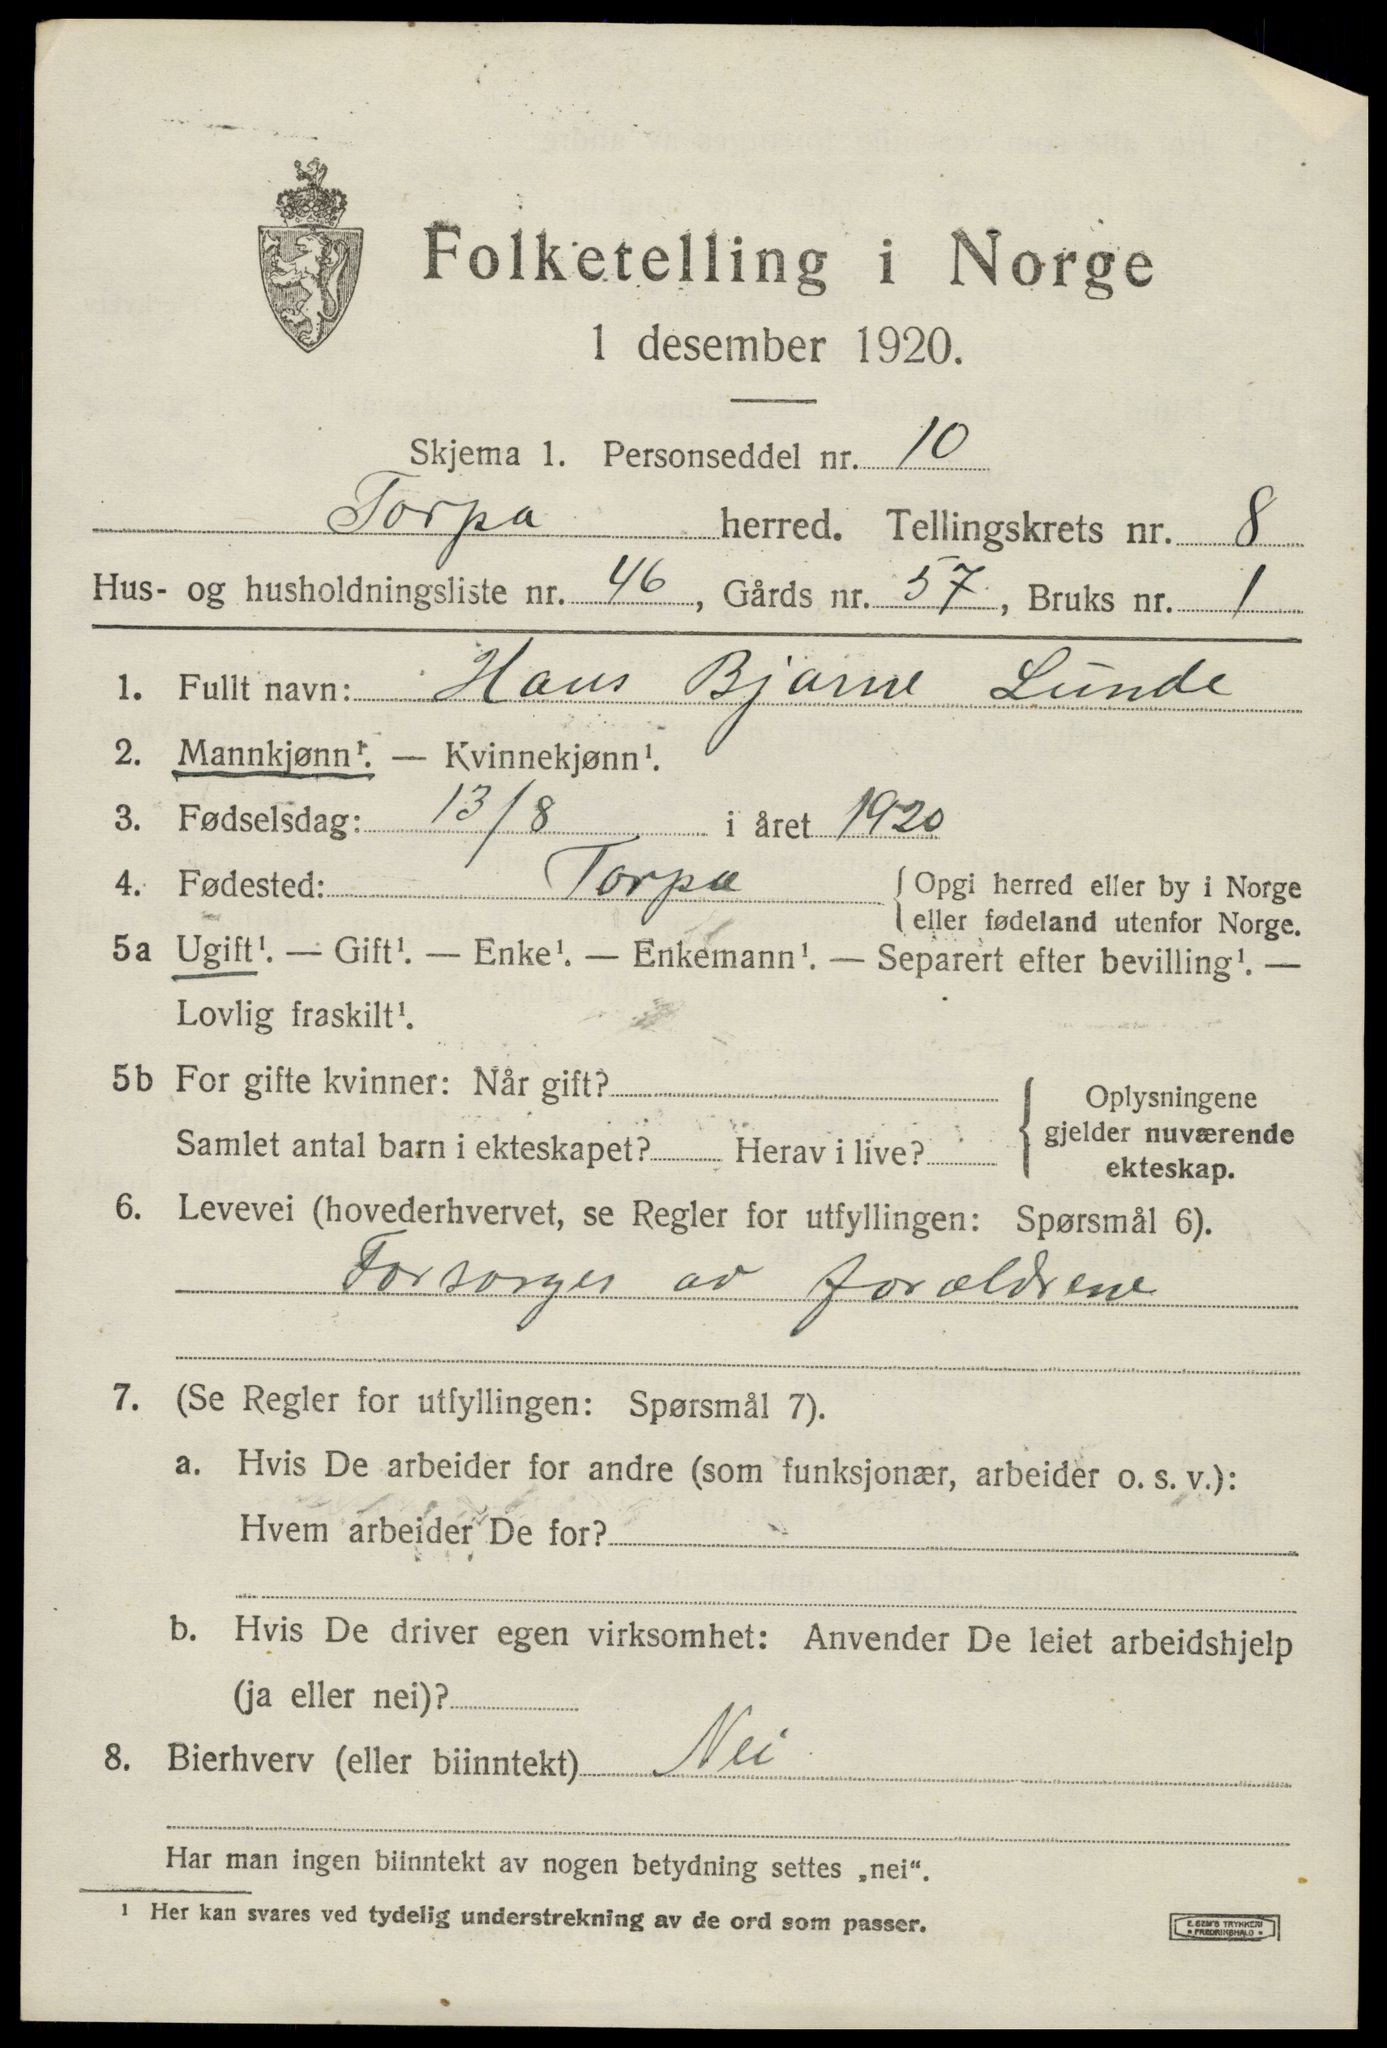 Folketelling i Norge
1 desember 1920.
Skjema 1. Personseddel nr. 10
Torpa herred. Tellingskrets nr. 8
Hus- og husholdningsliste nr. 46, Gårds nr. 57, Bruks nr. 1
1. Fullt navn: Hans Bjarne Lunde
2. Mannkjønn¹. — Kvinnekjønn¹.
3. Fødselsdag: 13/8 i året 1920
4. Fødested: Torpa { Opgi herred eller by i Norge
eller fødeland utenfor Norge.
5a Ugift¹. — Gift¹. — Enke¹. — Enkemann¹. — Separert efter bevilling¹. —
Lovlig fraskilt¹.
5b For gifte kvinner: Når gift?
Samlet antal barn i ekteskapet? Herav i live?
Oplysningene
gjelder nuværende
ekteskap.
6. Levevei (hovederhvervet, se Regler for utfyllingen: Spørsmål 6).
Forsorges av forældrene
7. (Se Regler for utfyllingen: Spørsmål 7).
a. Hvis De arbeider for andre (som funksjonær, arbeider o. s. v.):
Hvem arbeider De for?
b. Hvis De driver egen virksomhet: Anvender De leiet arbeidshjelp
(ja eller nei)?
8. Bierhverv (eller biinntekt) Nei
Har man ingen biinntekt av nogen betydning settes „nei“.
¹ Her kan svares ved tydelig understrekning av de ord som passer.
E. SEM'S TRYKKERI
* FREDRIKSHALD *